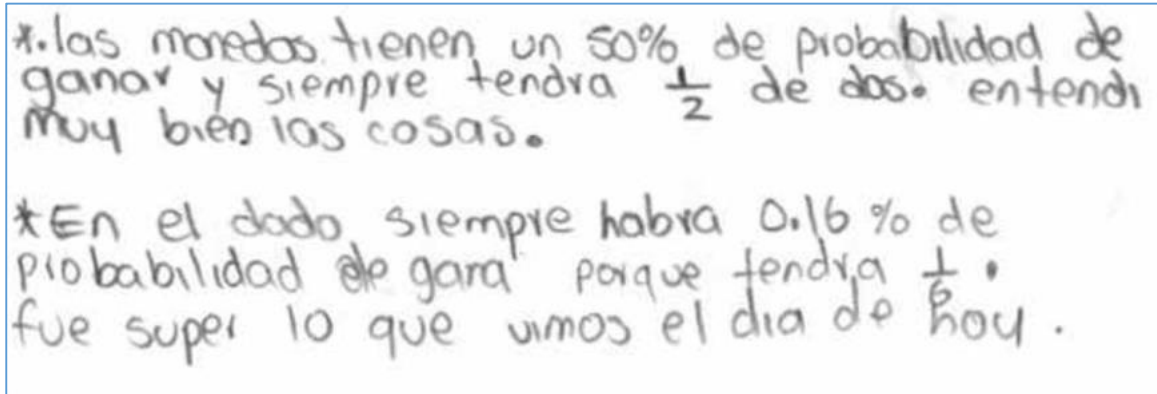 *. las monedas tienen un 50% de probabilidad de
ganar y siempre tendra 1/2 de dos. entendi
muy bien las cosas.
*En el dado siempre habra 0.16 % de
probabilidad de gana porque tendra 1/6.
fue super lo que vimos el dia de hoy.